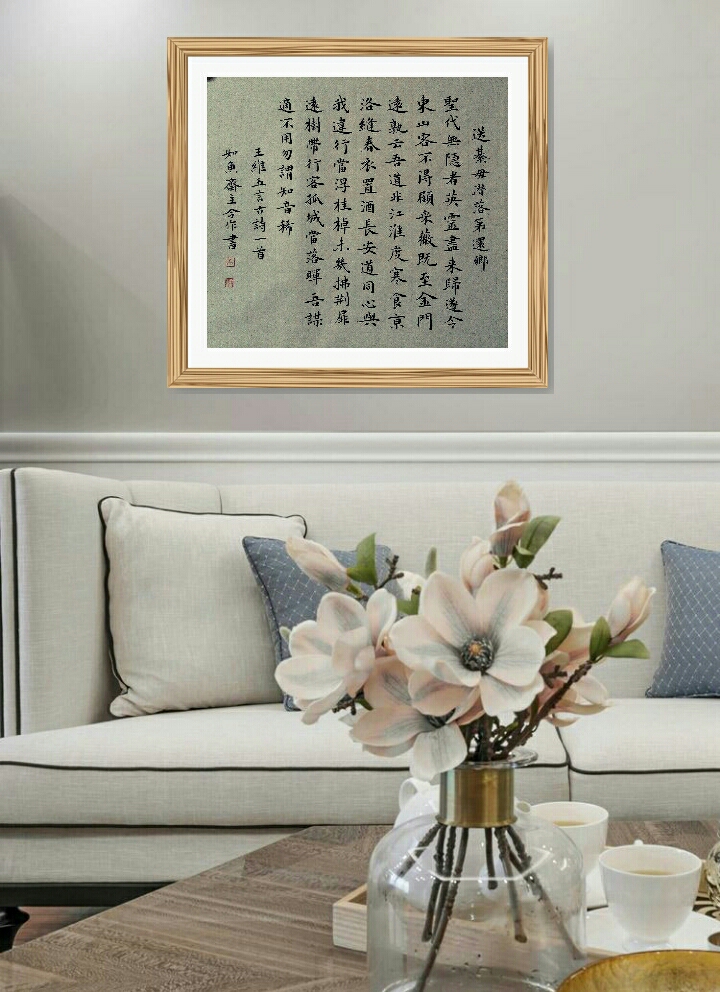 送綦毋潛落第還鄉
聖代無隐者英靈盡来歸遂令
東山客不得顧采薇既至金門
遠孰云吾道非江淮度寒食京
洛縫春衣置酒長安道同心與
我違行當浮桂棹未幾拂荆扉
遠樹帶行客孤城當落暉吾謀
適不用勿謂知音稀
王維五言古詩一首
如魚齋主合作書